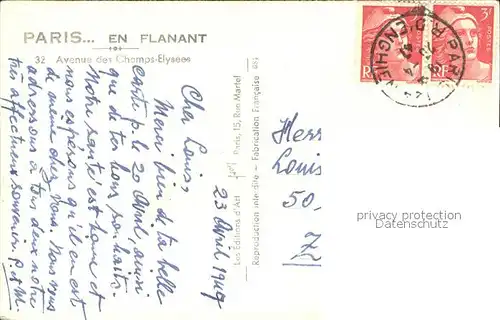 PARIS... EN FLANANT
32 Avenue des Champs-Elysées
23 Avril 1949
Cher Louis,
Merci bien de ta belle
carte du 20 Avril, ainsi
que de tes bons souhaits.
Notre santé est bonne et
nous espérons qu'il en est
de même chez vous. Nous vous
adressons à tous deux notre
très affectueux souvenir. P. & M.
Les Editions d'Art Paris, 15, Rue Martel
Reproduction interdite - Fabrication Française
Herr
Louis
50,
Z
3F
POSTES
RF
RF
PARIS
R.D'ENGHIEN
privacy protection
Oldthing Datenschutz